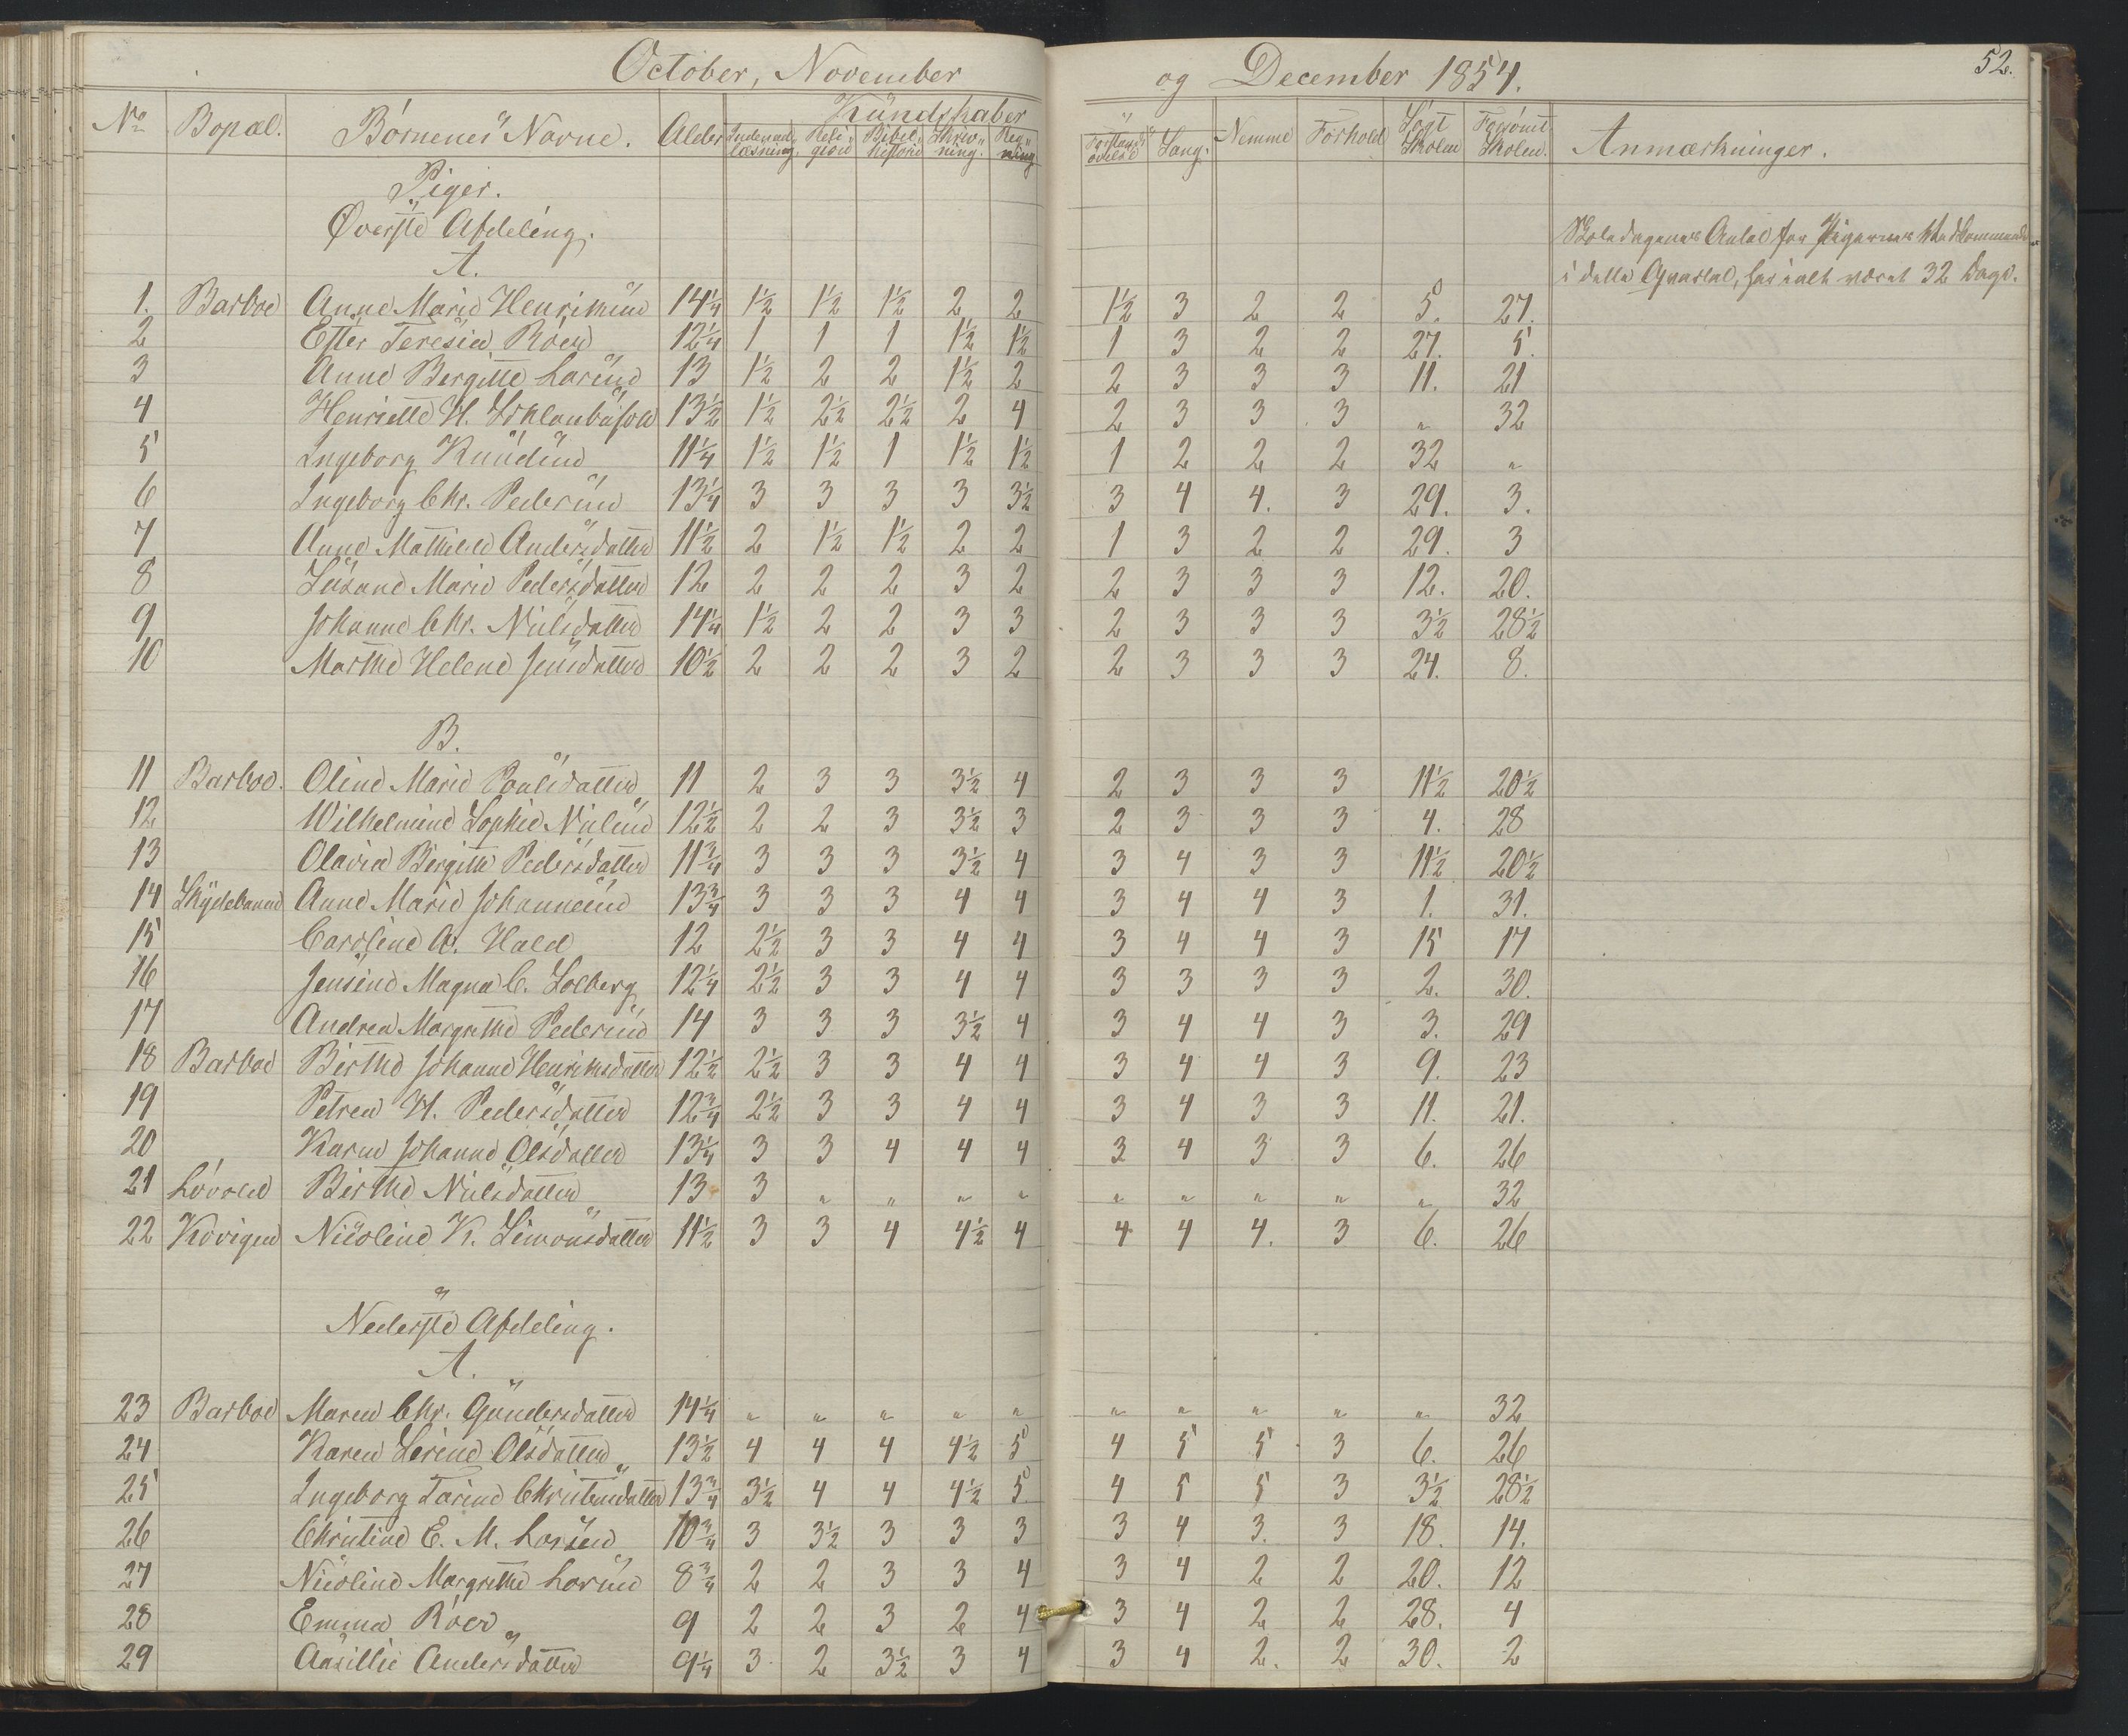 October, November og December 1854. 52.
No Bopæl. Børnenes Navne. Alder Kundskaber Nemme Forhold Søgt Skolen Forsømt Skolen. Anmærkninger.
Indenadlæsning. Religion Bibelhistorie Skrivning. Regning Forstandsøvelse Sang.
Piger.
Øverste Afdeling.
Skoledagenes Antal for Pigernes Vedkommende
A.
i dette Qvartal, har ialt været 32 Dage.
1. Barboe Anne Marie Henriksen 14 1/4 1 1/2 1 1/2 1 1/2 2 2 1 1/2 3 2 2 5. 27.
2 Ester Teresia Röer 12 1/4 1 1 1 1 1/2 1 1/2 1 3 2 2 27. 5.
3 Anne Bergitte Larsen 13 1 1/2 2 2 1 1/2 2 2 3 3 3 11. 21
4 Henriette H. 13 1/2 1 1/2 2 1/2 2 1/2 2 4 2 3 3 3 " 32
5 Ingeborg Knudsen 11 1/4 1 1/2 1 1/2 1 1 1/2 1 1/2 1 2 2 2 32 "
6 Ingeborg Chr. Pedersen 13 1/4 3 3 3 3 3 1/2 3 4 4. 3 29. 3.
7 Anne Mathilde Andersdatter 11 1/2 2 1 1/2 1 1/2 2 2 1 3 2 2 29. 3
8 Susane Marie Pedersdatter 12 2 2 2 3 2 2 3 3 3 12. 20.
9 Johanne Chr. Nielsdatter 14 1/4 1 1/2 2 2 3 3 2 3 3 3 3 1/2 28 1/2
10 Marthe Helene Jensdatter 10 1/2 2 2 2 3 2 2 3 3 3 24. 8.
B.
11 Barboe. Oline Marie Poulsdatter 11 2 3 3 3 1/2 4 2 3 3 3 11 1/2 20 1/2
12 Wilhelmine Sophie Nielsen 12 1/2 2 2 3 3 1/2 3 2 3 3 3 4. 28
13 Olavia Birgitte Pedersdatter 11 3/4 3 3 3 3 1/2 4 3 4 3 3 11 1/2 20 1/2
14 Skydebanen Anne Marie Johannesen 13 3/4 3 3 3 4 4 3 4 4 3 1. 31.
15 Caroline A. Hald 12 2 1/2 3 3 4 4 3 4 4 3 15 17
16 Jensine Magna C. Solberg 12 1/4 2 1/2 3 3 4 4 3 3 3 3 2. 30.
17 Andrea Margrethe Pedersen 14 3 3 3 3 1/2 4 3 4 4 3 3. 29
18 Barboe Birthe Johanne Henriksdatter 12 1/2 2 1/2 3 3 4 4 3 4 4 3 9. 23
19 Petrea H. Pedersdatter 12 3/4 2 1/2 3 3 4 4 3 4 3 3 11. 21.
20 Karen Johanne Olsdatter 13 1/4 3 3 4 4 4 3 4 3 3 6. 26
21 Løvold Birthe Nielsdatter 13 3 " " " " " " " " " 32
22 Kovigen Nicoline K. Simonsdatter 11 1/2 3 3 4 4 1/2 4 4 4 4. 3 6. 26
Nederste Afdeling.
A.
23 Barboe Maren Chr. Gundersdatter 14 1/4 " " " " " " " " " " 32
24 Karen Serine Olsdatter 13 1/2 4 4 4 4 1/2 5 4 5 5 3 6. 26
25 Ingeborg Tarine Christensdatter 13 3/4 3 1/2 4 4 4 1/2 5. 4 5 5 3 3 1/2 28 1/2
26 Christine E. M. Larsen 10 3/4 3 3 1/2 3 3 3 3 4 3. 3 18. 14.
27 Nicoline Margrethe Larsen 8 3/4 2 2 3 3 4 3 4 2 2 20. 12
28 Emma Röer 9 2 2 3 2 4 3 4 2 2 28. 4
29 Aasillie Andersdatter 9 1/4 3 2 3 1/2 3 4 3 4 2. 2 30. 2